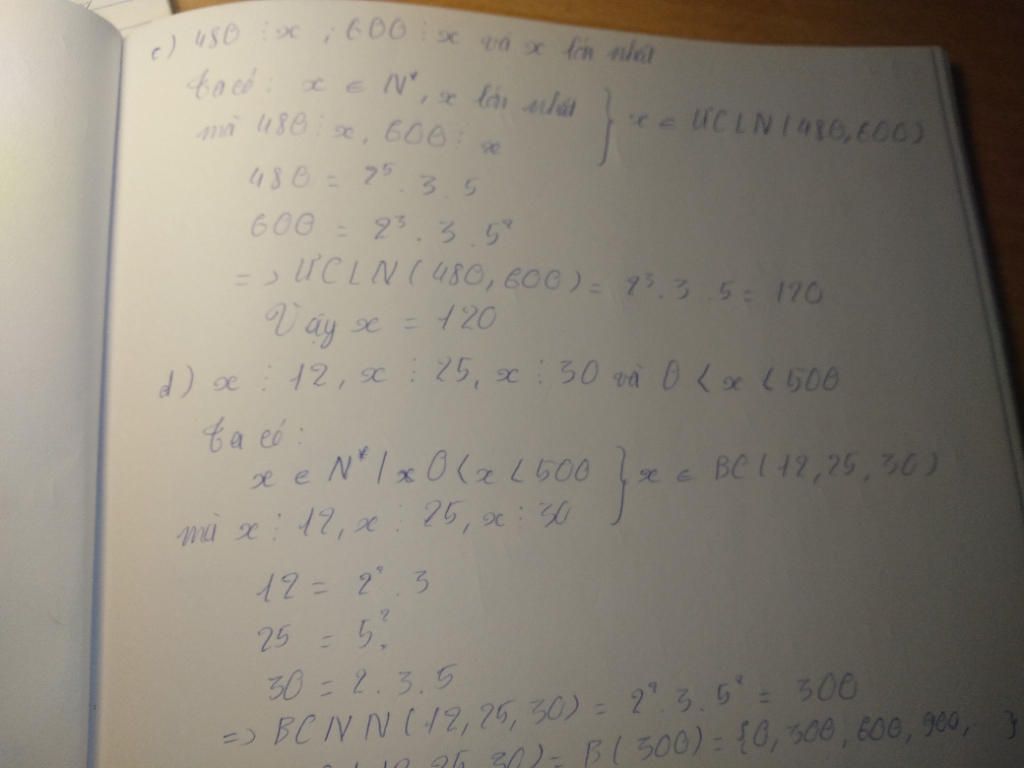 c) 480 ⋮ x , 600 ⋮ x và x lớn nhất
Ta có: x ∈ N*, x lớn nhất
mà 480 ⋮ x, 600 ⋮ x } x ∈ ƯCLN(480,600)
480 = 2⁵ . 3 . 5
600 = 2³ . 3 . 5²
=> ƯCLN(480,600) = 2³ . 3 . 5 = 120
Vậy x = 120
d) x ⋮ 12, x ⋮ 25, x ⋮ 30 và 0 < x < 500
Ta có:
x ∈ N* | x 0 < x < 500
mà x ⋮ 12, x ⋮ 25, x ⋮ 30 } x ∈ BC(12,25,30)
12 = 2² . 3
25 = 5².
30 = 2 . 3 . 5
=> BCNN(12,25,30) = 2² . 3 . 5² = 300
12,25,30) = B(300) = {0, 300, 600, 900, . }